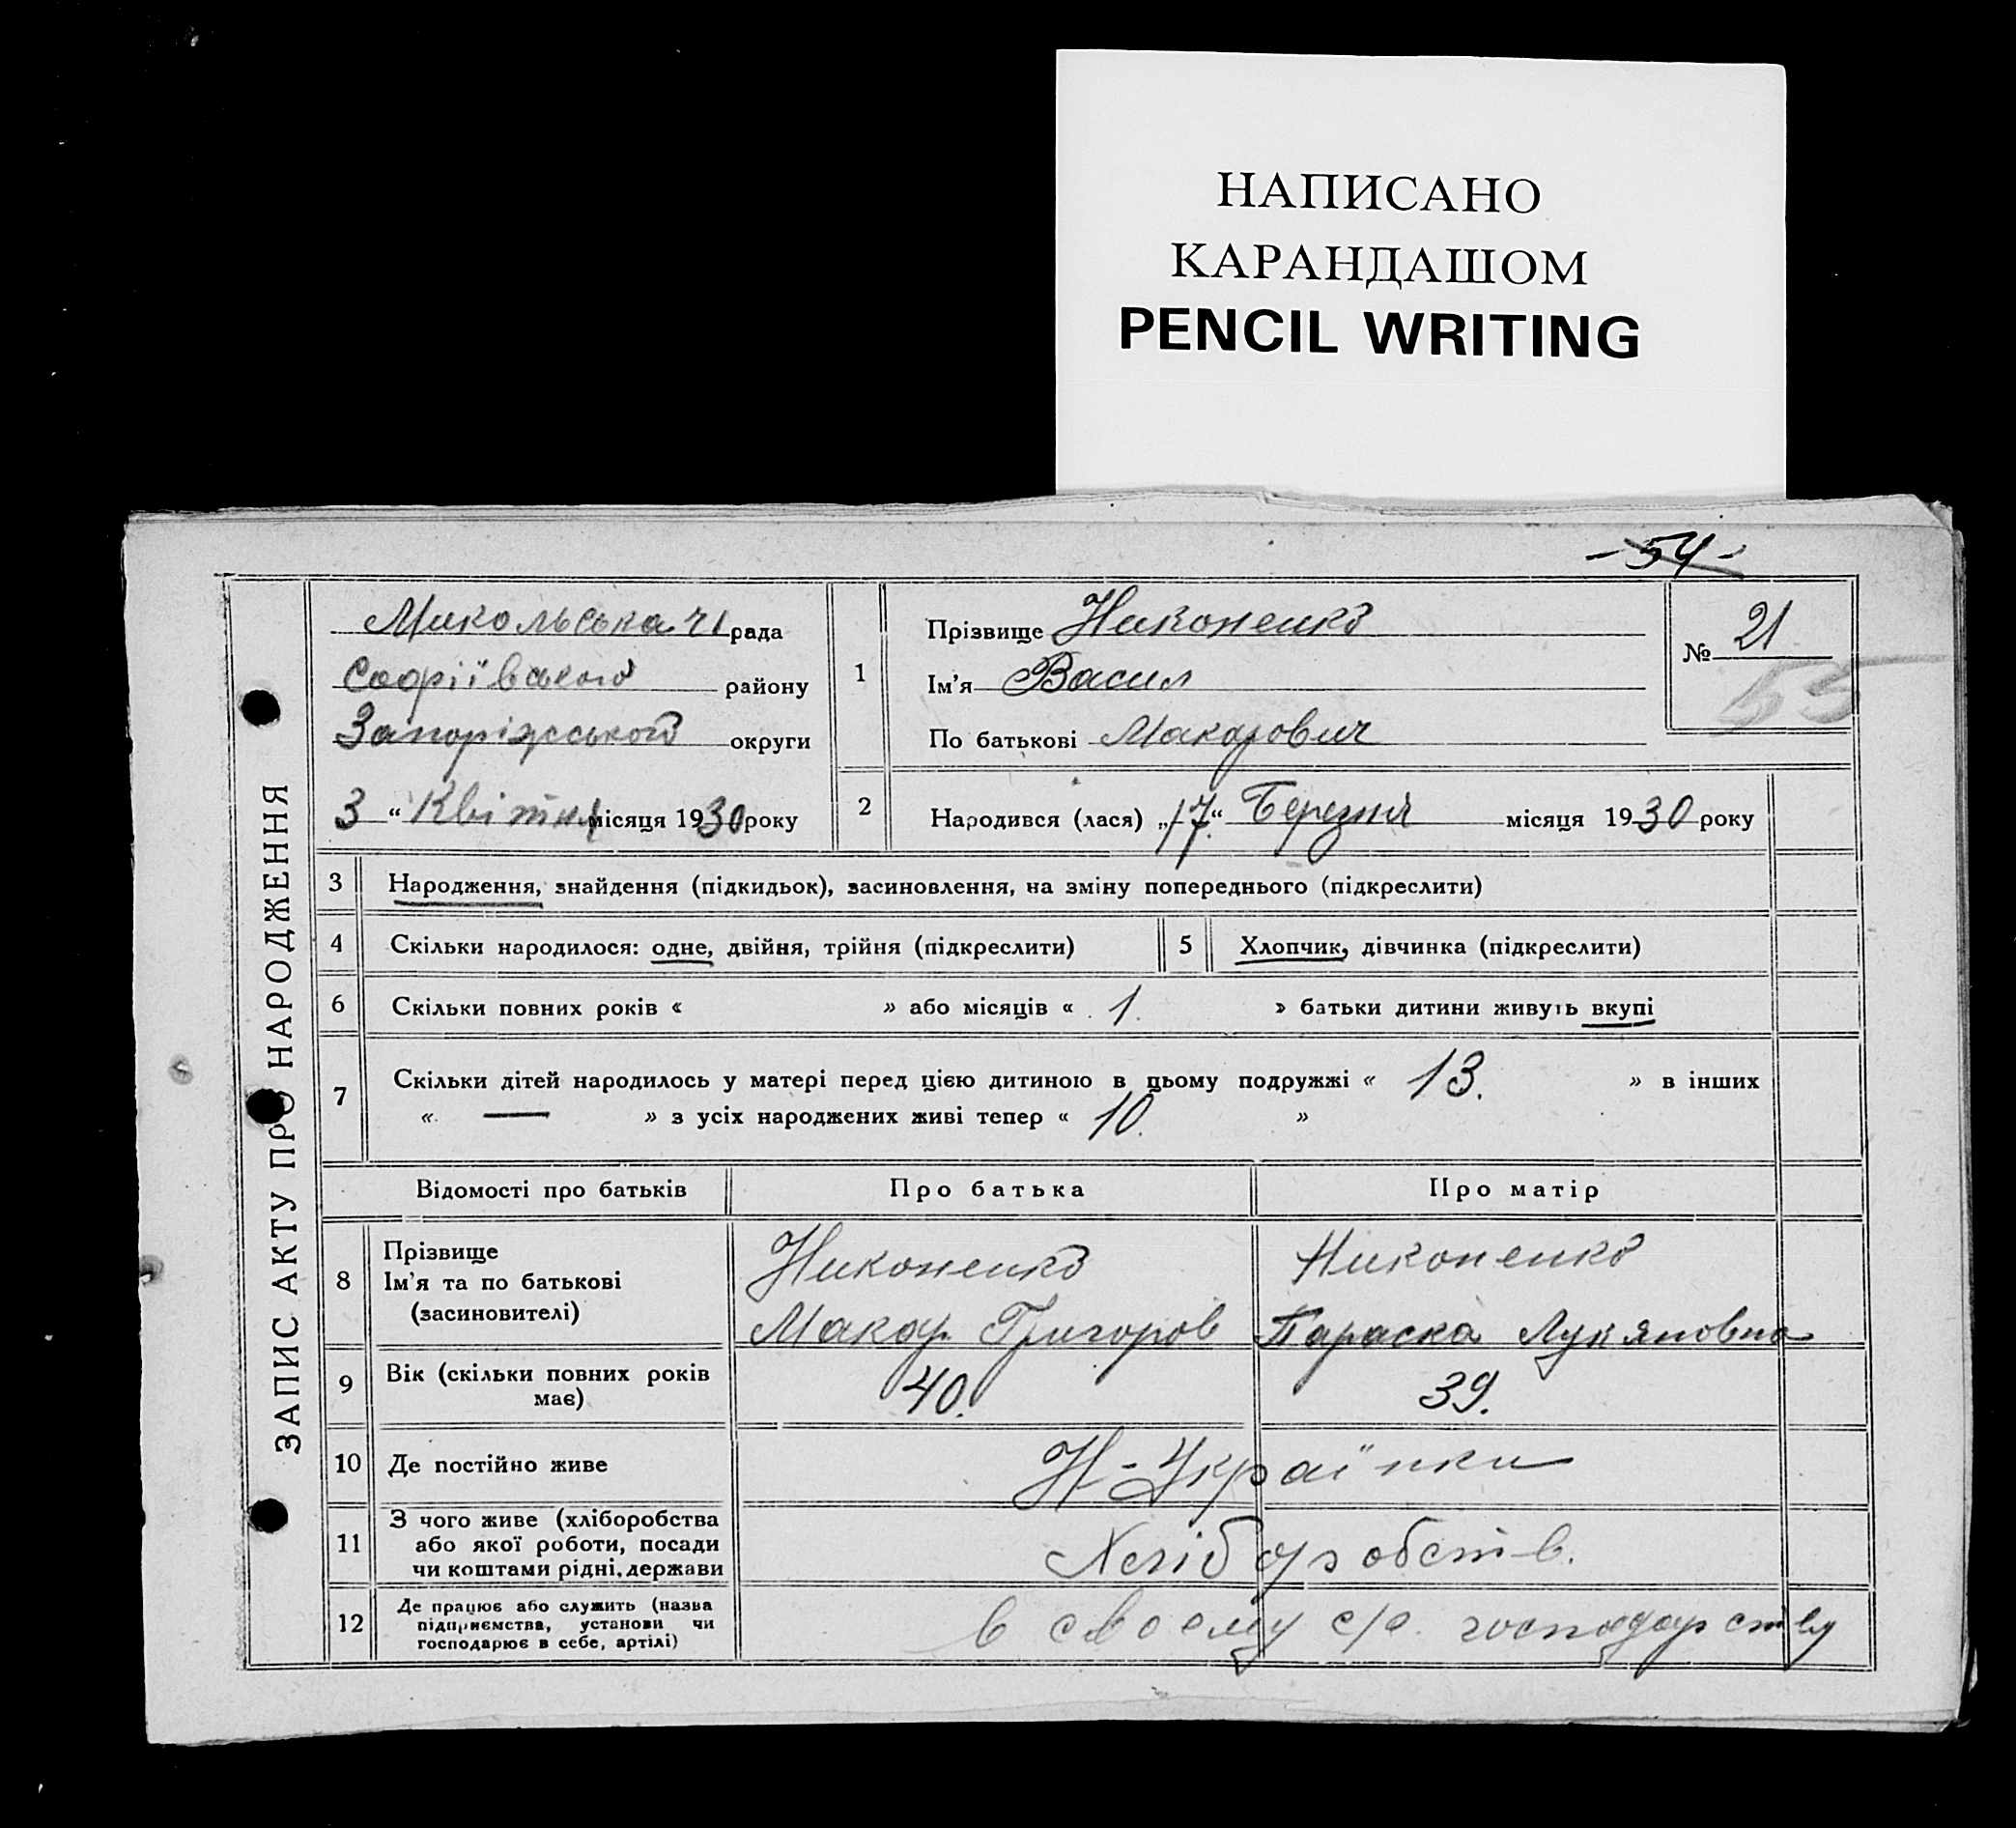 НАПИСАНО
КАРАНДАШОМ
PENCIL WRITING
- 54 -
ЗАПИС АКТУ ПРО НАРОДЖЕННЯ
Микольська рада
Софіївського району
Запоріжського округи
3 “ Квітня місяця 1930 року
1
Прізвище Никоненко
Ім’я Васил
По батькові Макарович
№ 21
55
2 Народився (лася) „17“ Березня місяця 1930 року
3 Народження, знайдення (підкидьок), засиновлення, на зміну попереднього (підкреслити)
4 Скільки народилося: одне, двійня, трійня (підкреслити) 5 Хлопчик, дівчинка (підкреслити)
6 Скільки повних років « » або місяців « 1. » батьки дитини живуть вкупі
7 Скільки дітей народилось у матері перед цією дитиною в цьому подружжі « 13. » в інших
« — » з усіх народжених живі тепер « 10. »
Відомості про батьків Про батька Про матір
8 Прізвище
Ім’я та по батькові
(засиновителі)
Никоненко Никоненко
Макар Григоров Параска Лукяновна
9 Вік (скільки повних років
має) 40. 39.
10 Де постійно живе Н-Україпки
11 З чого живе (хліборобства
або якої роботи, посади
чи коштами рідні, держави
Хліборобств.
12 Де працює або служить (назва
підприємства, установи чи
господарює в себе, артілі)
в своему с/г. господарству